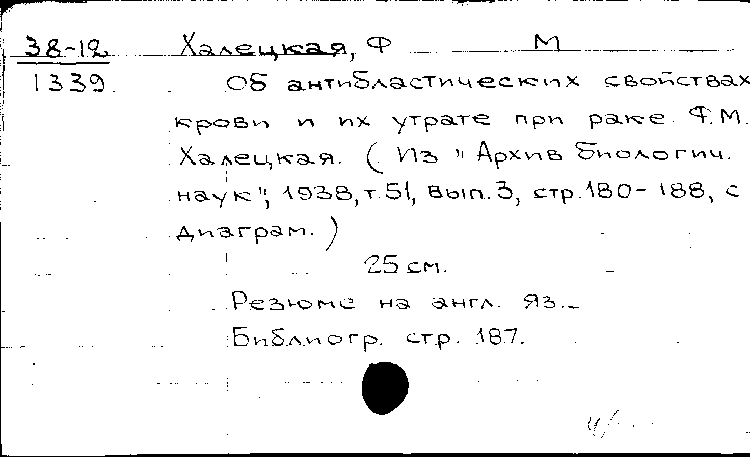 38-12 Халецкая, Ф М
1339. Об антибластических свойствах
крови и их утрате при раке. Ф.М.
Халецкая. (Из "Архив биологич.
наук", 1938, т.51, вып.3, стр.180-188, с
диаграм.)
25 см.
Резюме на англ. яз.
Библиогр. стр. 187.